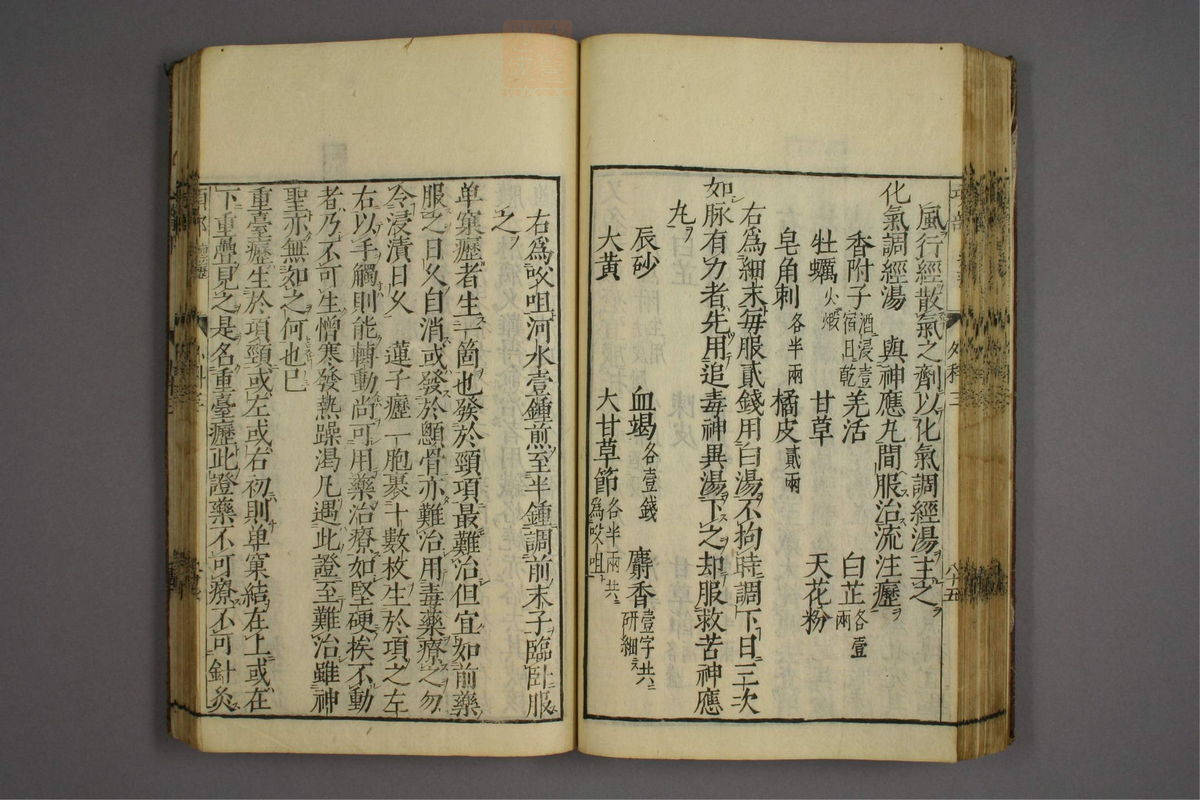 風行經散氣之劑以化氣調經湯主之
化氣調經湯 與神應丸間服治流注癧
香附子酒浸壹宿且乾 羌活 白芷各壹兩
牡蠣火煅 甘草 天花粉
皂角刺各半兩 橘皮貳兩
右爲細末毎服貳錢用白湯不拘時調下日三次
如脉有力者先用追毒神異湯下之却服救苦神應
丸
辰砂 血竭各壹錢 麝香壹字共研細
大黃 大甘草節各半兩共爲㕮咀
右爲㕮咀河水壹鍾煎至半鍾調前末子臨卧服
之
单窠癧者生一箇也發於頸項最難治但宜如前藥
服之日久自消或發於顋骨亦難治用毒藥齊之勿
令浸漬日久 蓮子癧一胞裹十數枚生於項之左
右以手觸則能轉動尚可用藥治療如堅硬挨不動
者乃不可生憎寒發熱躁渴凡遇此證至難治雖神
聖亦無如之何也已
重臺癧生於項頸或左或右初則单窠結在上或在
下重疊見之是名重臺癧此證藥不可療不可針灸
外科三
八十五